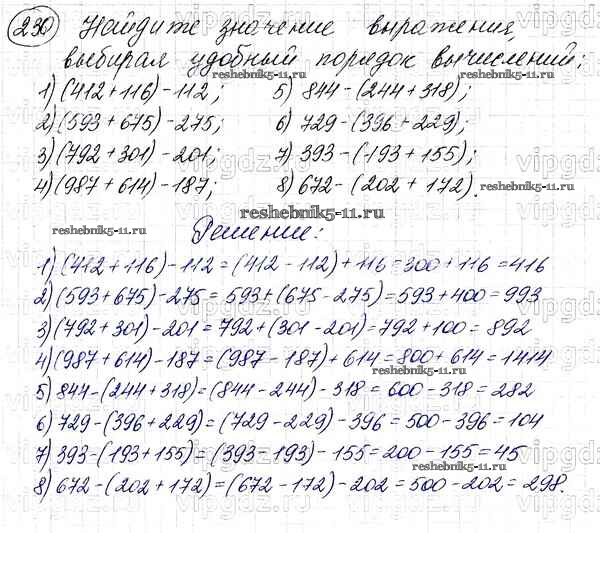 230 Найдите значение выражения,
выбирая удобный порядок вычислений;
reshebnik5-11.ru reshebnik5-11.ru
1) (412+116)-112; 5) 844-(244+318);
2) (593+675)-275; 6) 729-(396+229);
3) (792+301)-201; 7) 393-(193+155);
4) (987+614)-187; 8) 672-(202+172).
reshebnik5-11.ru
reshebnik5-11.ru Решение: reshebnik5-11.ru
1) (412+116)-112=(412-112)+116=300+116=416
2) (593+675)-275=593+(675-275)=593+400=993
3) (792+301)-201=792+(301-201)=792+100=892
4) (987+614)-187=(987-187)+614=800+614=1414
5) 844-(244+318)=(844-244)-318=600-318=282
6) 729-(396+229)=(729-229)-396=500-396=104
7) 393-(193+155)=(393-193)-155=200-155=45
reshebnik5-11.ru
8) 672-(202+172)=(672-172)-202=500-202=298.